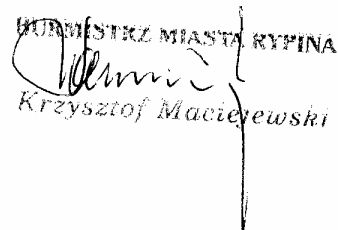 BURMISTRZ MIASTA RYPINA
Krzysztof Maciejewski